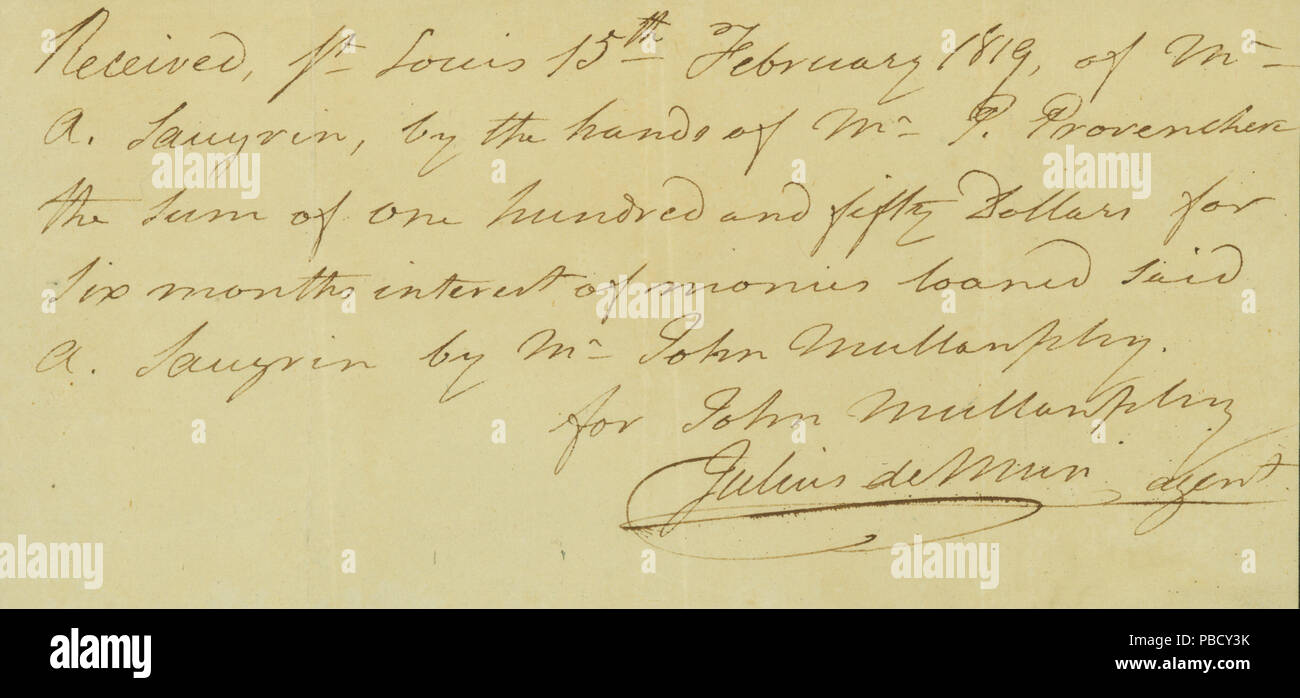 Received, St Louis 15th February 1819, of Mr
A. Saugrin, by the hands of Mr P. Provenchere
the sum of one hundred and fifty Dollars for
six months interest of monies loaned said
A. Saugrin by Mr John Mullanphy.
for John Mullanphy
Julius de Mun agent.
alamy
alamy
Image ID: PBCY3K
www.alamy.com